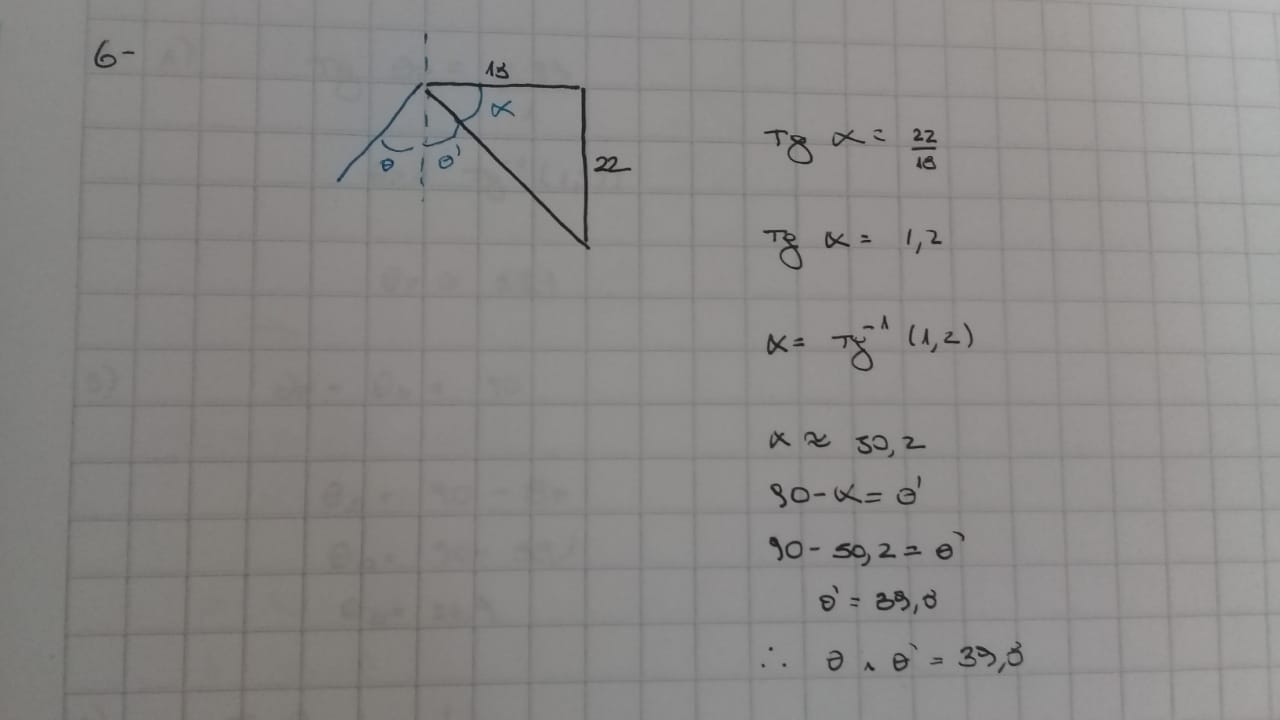 6-
18
α
θ θ'
22
Tg α = 22/18
Tg α = 1,2
α = Tg⁻¹ (1,2)
α ≈ 50,2
90-α = θ'
90 - 50,2 = θ'
θ' = 39,8
∴ θ ∧ θ' = 39,8